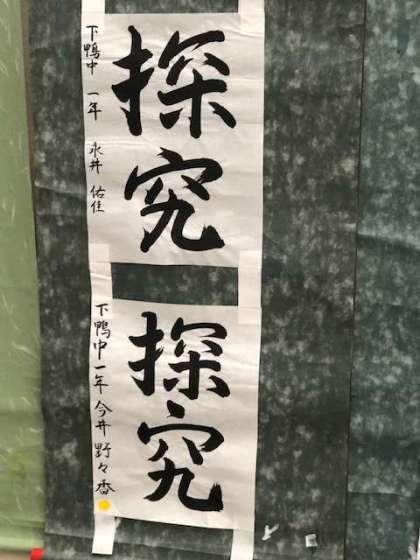 探究
下鴨中 一年 永井 佑佳
探究
下鴨中一年 今井 野々香